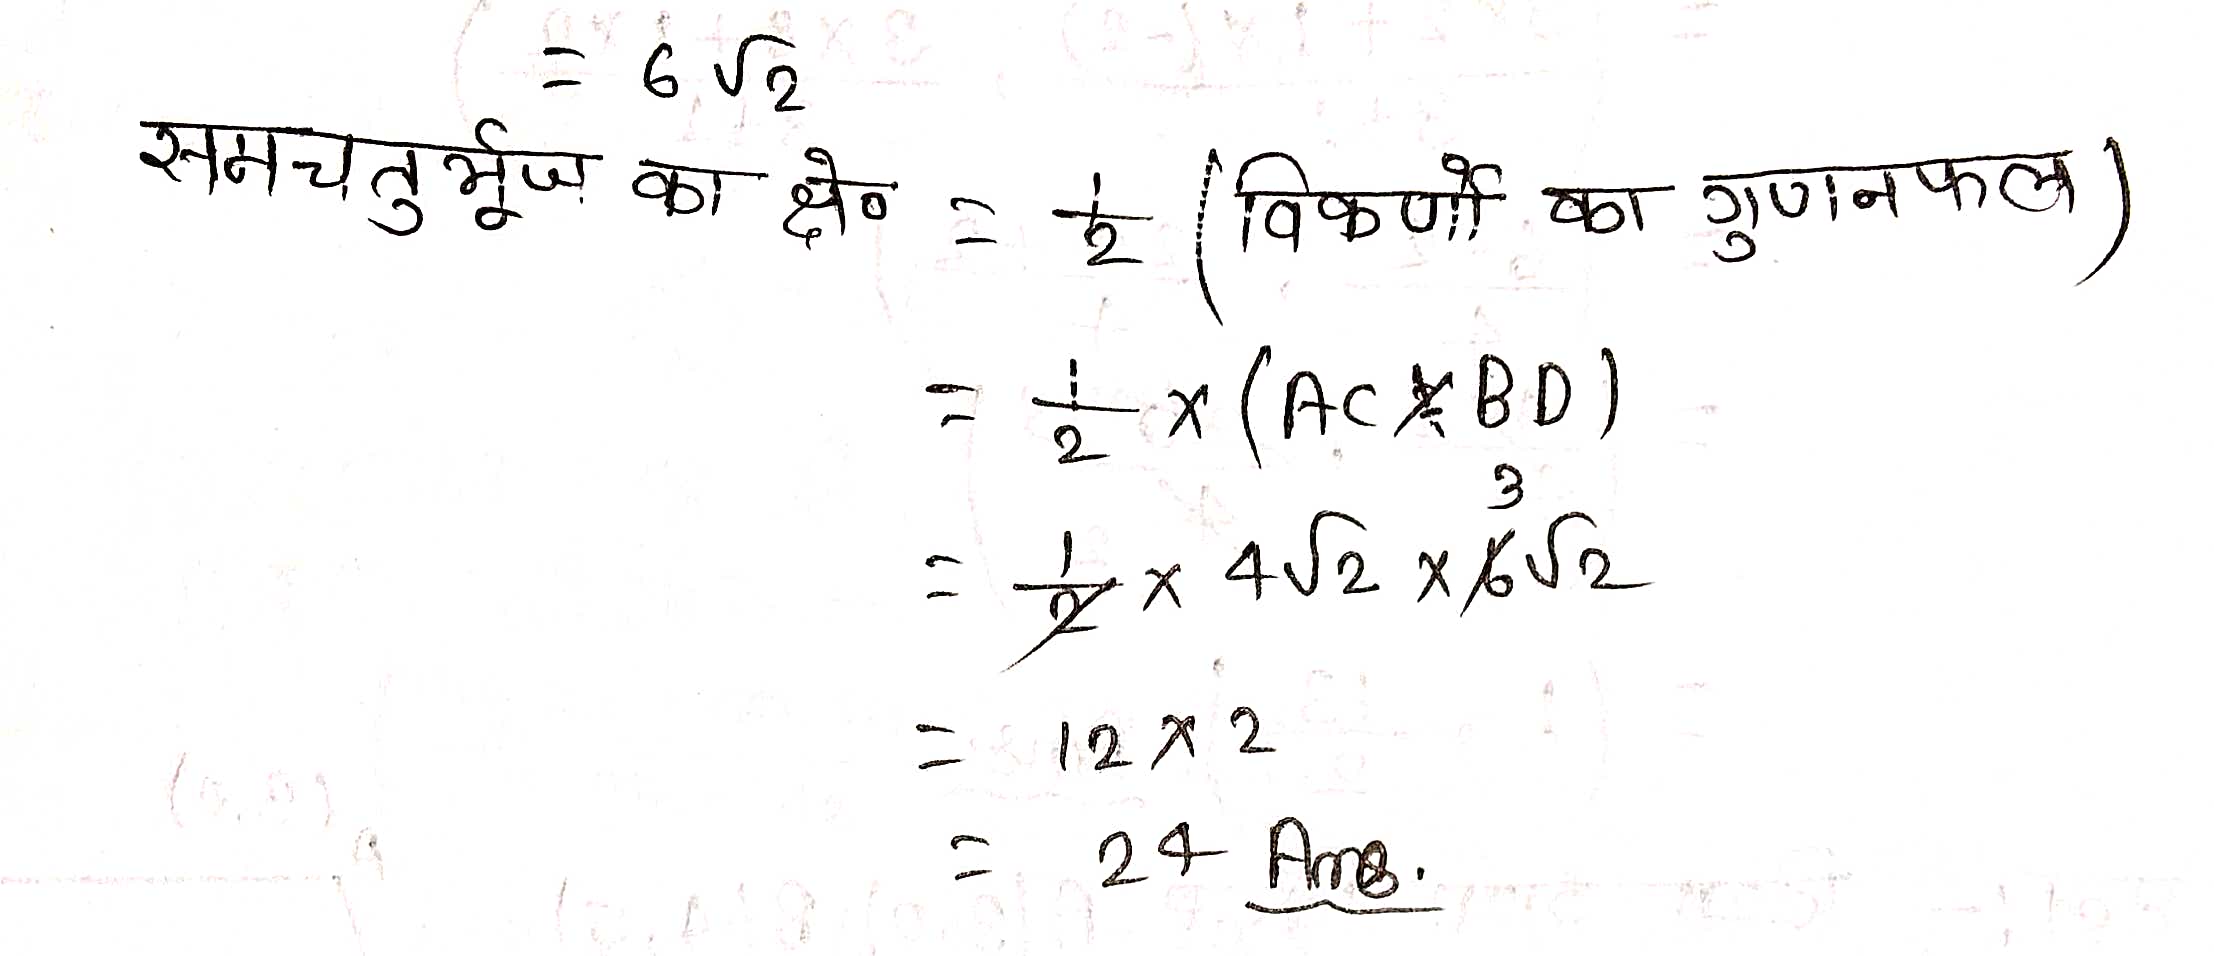 = 6√2
समचतुर्भूज का क्षे० = 1/2 (विकर्णों का गुणनफल)
= 1/2 × (AC × BD)
3
= 1/2 × 4√2 × 6√2
= 12 × 2
= 24 Ans.